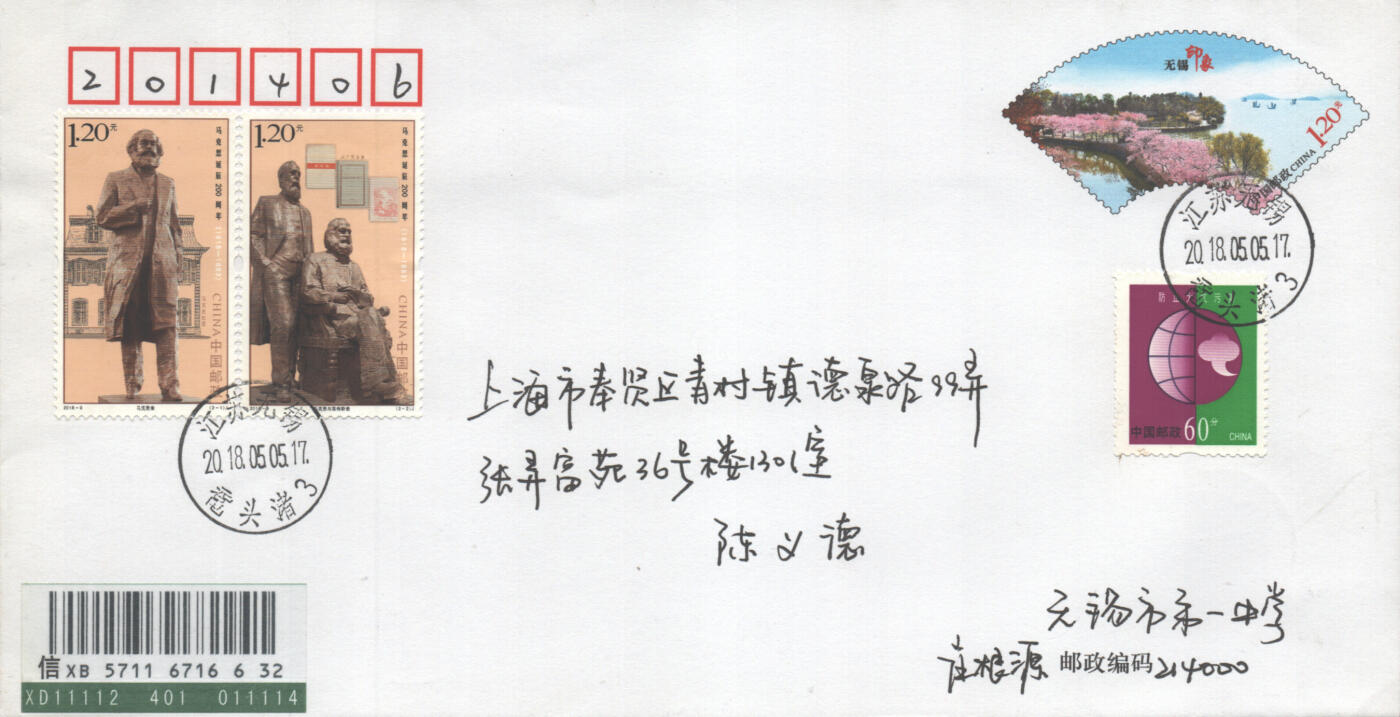 201406
1.20元
马克思诞辰200周年 (1818—1883)
CHINA 中国邮政
2018-9 马克思像 (2-1)J
1.20元
马克思诞辰200周年 (1818—1883)
CHINA 中国邮
(2-2)J
无锡印象
1.20元
中国邮政 CHINA
江苏无锡
20.18.05.05.17.
鼋头渚 3
防止大气污
中国邮政 60分 CHINA
江苏无锡
20.18.05.05.17.
鼋头渚 3
上海市奉贤区青村镇德泉路99弄
张弄富苑36号楼1301室
陈义德
无锡市第一中学
崔根源 邮政编码 214000
信 XB 5711 6716 6 32
XD11112 401 011114